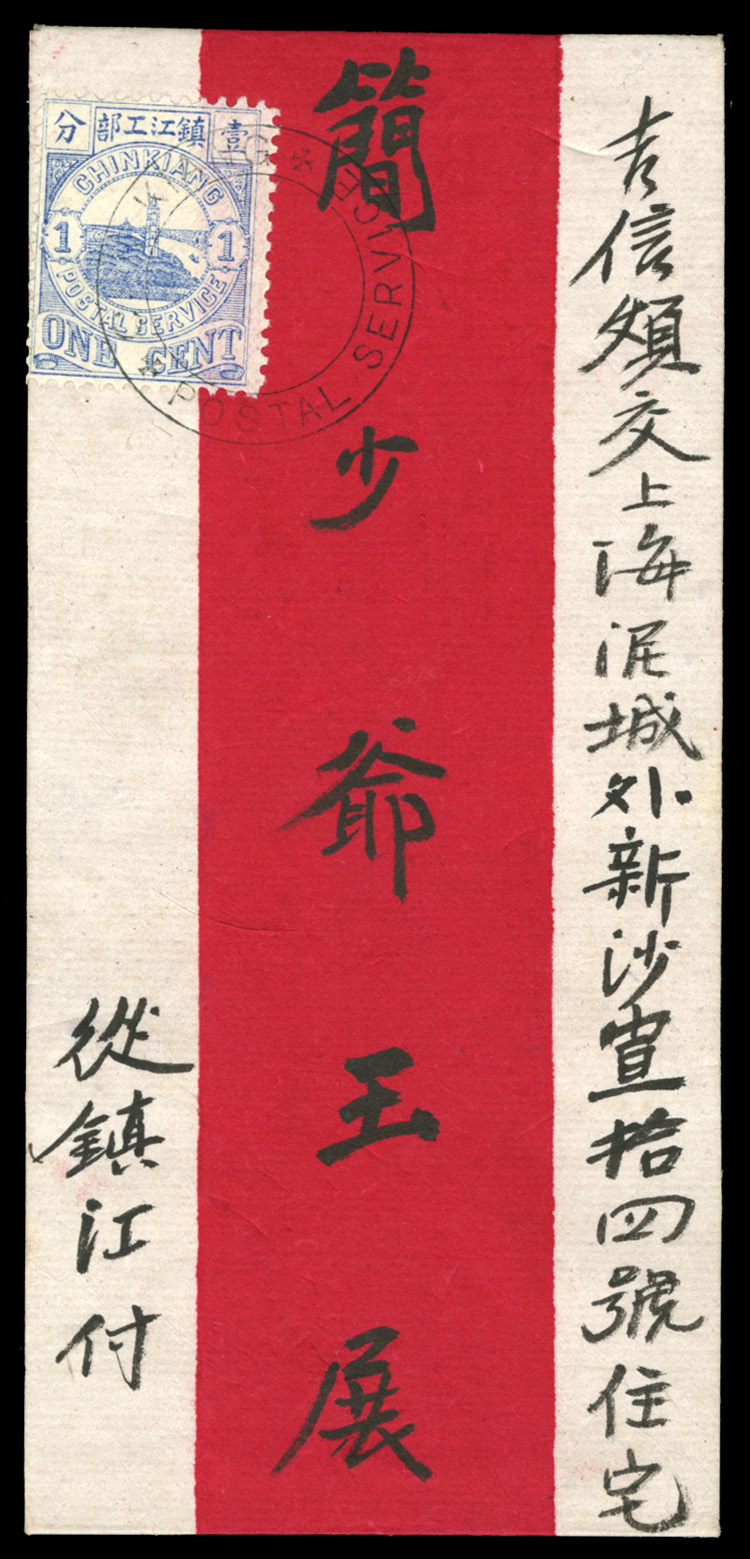 吉信頗交上海泥城外新沙宣拾四號住宅
簡少爺玉展
從鎮江付
分 鎮江工部 壹
CHINKIANG
1 1
POSTAL SERVICE
ONE CENT
POSTAL SERVICE